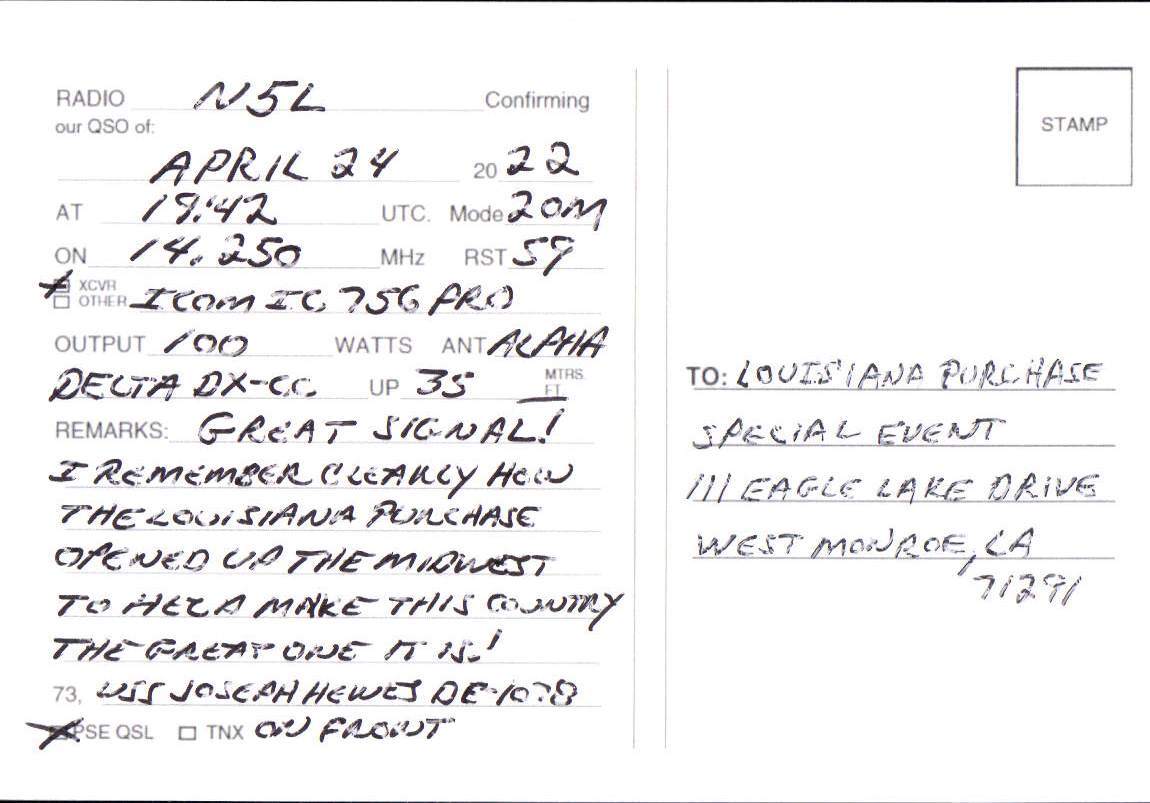 RADIO N5L Confirming
our QSO of:
APRIL 24 2022
AT 19:42 UTC. Mode 20M
ON 14.250 MHz RST 59
XCVR
OTHER ICOM IC 756 PRO
OUTPUT 100 WATTS ANT ALPHA
DELTA DX-CC UP 35 MTRS.
FT.
REMARKS: GREAT SIGNAL!
I REMEMBER CLEARLY HOW
THE LOUISIANA PURCHASE
OPENED UP THE MIDWEST
TO HELP MAKE THIS COUNTRY
THE GREAT ONE IT IS!
73, USS JOSEPH HEWES DE-1078
PSE QSL TNX ON FRONT
STAMP
TO: LOUISIANA PURCHASE
SPECIAL EVENT
111 EAGLE LAKE DRIVE
WEST MONROE, LA
71291